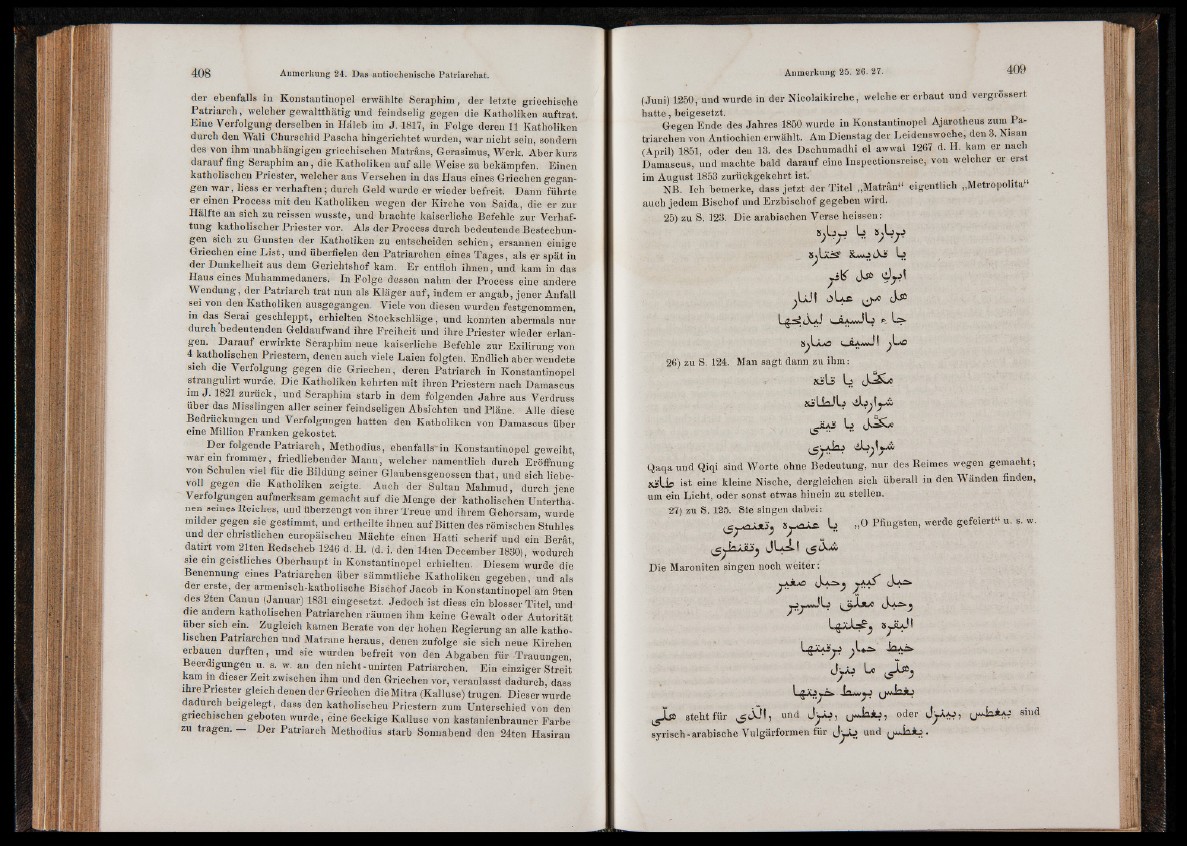 408 Anmerkung 24. Das antiochenische Patriarchat.
der ebenfalls in Konstantinopel erwählte Seraphim, der letzte griechische
Patriarch, welcher gewaltthätig und feindselig gegen die Katholiken auftrat.
Eine Verfolgung derselben in Háleb im J. 1817, in Folge deren 11 Katholiken
durch den Wali Churschid Pascha hingerichtet wurden, war nicht sein, sondern
des von ihm unabhängigen griechischen Matrâns, Gerasimus, Werk. Aber kurz
darauf fing Seraphim an, die Katholiken auf alle Weise zu bekämpfen. Einen
katholischen Priester, welcher aus Versehen in das Haus eines Griechen gegan-
gen war, liess er verhaften; durch Geld wurde er wieder befreit. Dann führte
er einen Process mit den Katholiken wegen der Kirche von Saida, die er zur
Hälfte an sich zu reissen wusste, und brachte kaiserliche Befehle zur Verhaf-
tung katholischer Priester vor. Als der Process durch bedeutende Bestechun-
gen sich zu Gunsten der Katholiken zu entscheiden schien, ersannen einige
Griechen eine List, und überfielen den Patriarchen eines Tages, als er spät in
der Dunkelheit aus dem Gerichtshof kam. Er entfloh ihnen, und kam in das
Haus eines Muhammedaners. In Folge dessen nahm der Process eine andere
Wendung, der Patriarch trat nun als Kläger auf, indem er angab, jener Anfall
sei von den Katholiken ausgegangen. Viele von diesen wurden festgenommen,
in das Serai geschleppt, erhielten Stockschläge, und konnten abermals nur
durch bedeutenden Geldaufwand ihre Freiheit und ihre Priester wieder erlan-
gen. Darauf erwirkte Seraphim neue kaiserliche Befehle zur Exilirung von
4 katholischen Priestern, denen auch viele Laien folgten. Endlich aber wendete
sich die Verfolgung gegen die Griechen, deren Patriarch in Konstantinopel
strangulirt wurde. Die Katholiken kehrten mit ihren Priestern nach Damascus
im J. 1821 zurück, und Seraphim starb in dem folgenden Jahre aus Verdruss
über das Misslingen aller seiner feindseligen Absichten und Pläne. Alle diese
Bedrückungen und Verfolgungen hatten den Katholiken von Damascus über
eine Million Franken gekostet.
Der folgende Patriarch, Methodius, ebenfalls in Konstantinopel geweiht,
war ein frommer, friedliebender Mann, welcher namentlich durch Eröffnung
von Schulen viel für die Bildung seiner Glaubensgenossen that, und sich liebe-
voll gegen die Katholiken zeigte. Auch der Sultan Mahmud, durch jene
Verfolgungen aufmerksam gemacht auf die Menge der katholischen Untertha-
nen seines Reiches, und überzeugt von ihrer Treue und ihrem Gehorsam, wurde
milder gegen sie gestimmt, und ertheilte ihnen auf Bitten des römischen Stuhles
und der christlichen europäischen Mächte einen Hatti scherif und ein Berât,
datirt vom 21ten Redscheb 1246 d. H. (d. i. den 14ten December 1830), wodurch
sie ein geistliches Oberhaupt in Konstantinopel erhielten. Diesem wurde die
Benennung eines Patriarchen über sämmtliche Katholiken gegeben, und als
der erste, der armenisch-katholische Bischof Jacob in Konstantinopel am 9ten
des 2ten Canun (Januar) 1831 eingesetzt. Jedoch ist diess ein blosser Titel, und
die andern katholischen Patriarchen räumen ihm keine Gewalt oder Autorität
über sich ein. Zugleich kamen Berate von der hohen Regierung an alle katho-
lischen Patriarchen und Matrane heraus, denen zufolge sie sich neue Kirchen
erbauen durften, und sie wurden befreit von den Abgaben für Trauungen,
Beerdigungen u. s. w. an den nicht-unirten Patriarchen. Ein einziger Streit
kam in dieser Zeit zwischen ihm und den Griechen vor, veranlasst dadurch, dass
ihre Priester gleich denen der Griechen die Mitra (Kalluse) trugen. Dieser wurde
dadurch beigelegt, dass den katholischen Priestern zum Unterschied von den
griechischen geboten wurde, eine 6eckige Kalluse von kastanienbrauner Farbe
zu tragen. — Der Patriarch Methodius starb Sonnabend den 24ten Hasiran
Anmerkung 25. 26. 27. 409
(Juni) 1250, und wurde in der Nicolaikirche, welche er erbaut und vergrössert
hatte, beigesetzt.
Gegen Ende des Jahres 1850 wurde in Konstantinopel Ajarotheus zum Pa-
triarchen von Antiochien erwählt. Am Dienstag der Leidenswoche, den 3. Nisan
(April) 1851, oder den 13. des Dschumadhi el awwal 1267 d. H. kam er nach
Damascus, und machte bald darauf eine Inspectionsreise, von welcher er erst
im August 1853 zurückgekehrt ist.
NB. Ich bemerke, dass jetzt der Titel „Matrân“ eigentlich „Metropolita“
auch jedem Bischof und Erzbischof gegeben wird.
25) zu S. 123. Die arabischen Verse heissen:
بربارة يا بربارة
يا قديسة مختارة
ابوك هل كافر
هل من عباد النار
جاء بالسيف ليذبحها
صار السيف صنارة
26) zu S. 124. Man sagt dann zu ihm:
مكحّل يا قاقة
شواربك بالطاقة
مكحّل يا قيقى
شواربك بطيزى
Qaqa und Qiqi sind Worte ohne Bedeutung, nur des Reimes wegen gemacht;
طاقة ist eine kleine Nische, dergleichen sich überall in den Wänden finden,
um ein Licht, oder sonst etwas hinein zu stellen.
27) zu S. 125. Sie singen dabei:
يا عنصرة وتعنصرى „O Pfingsten, werde gefeiert“ u. s. w.
شدى الحبال وتقنطرى
Die Maroniten singen noch weiter:
حبل كبير وحبل صغير
وحبل معلق بالسرير
البقرة وعجلتها
حيط حمار برقبتها
وهلّى ما ينزل
يغطس يوسط خريتها
هلّى steht für الذى, und ينزل, يغطس, oder بينزل, بيغطس sind
syrisch-arabische Vulgärformen für ينزل und يغطس.